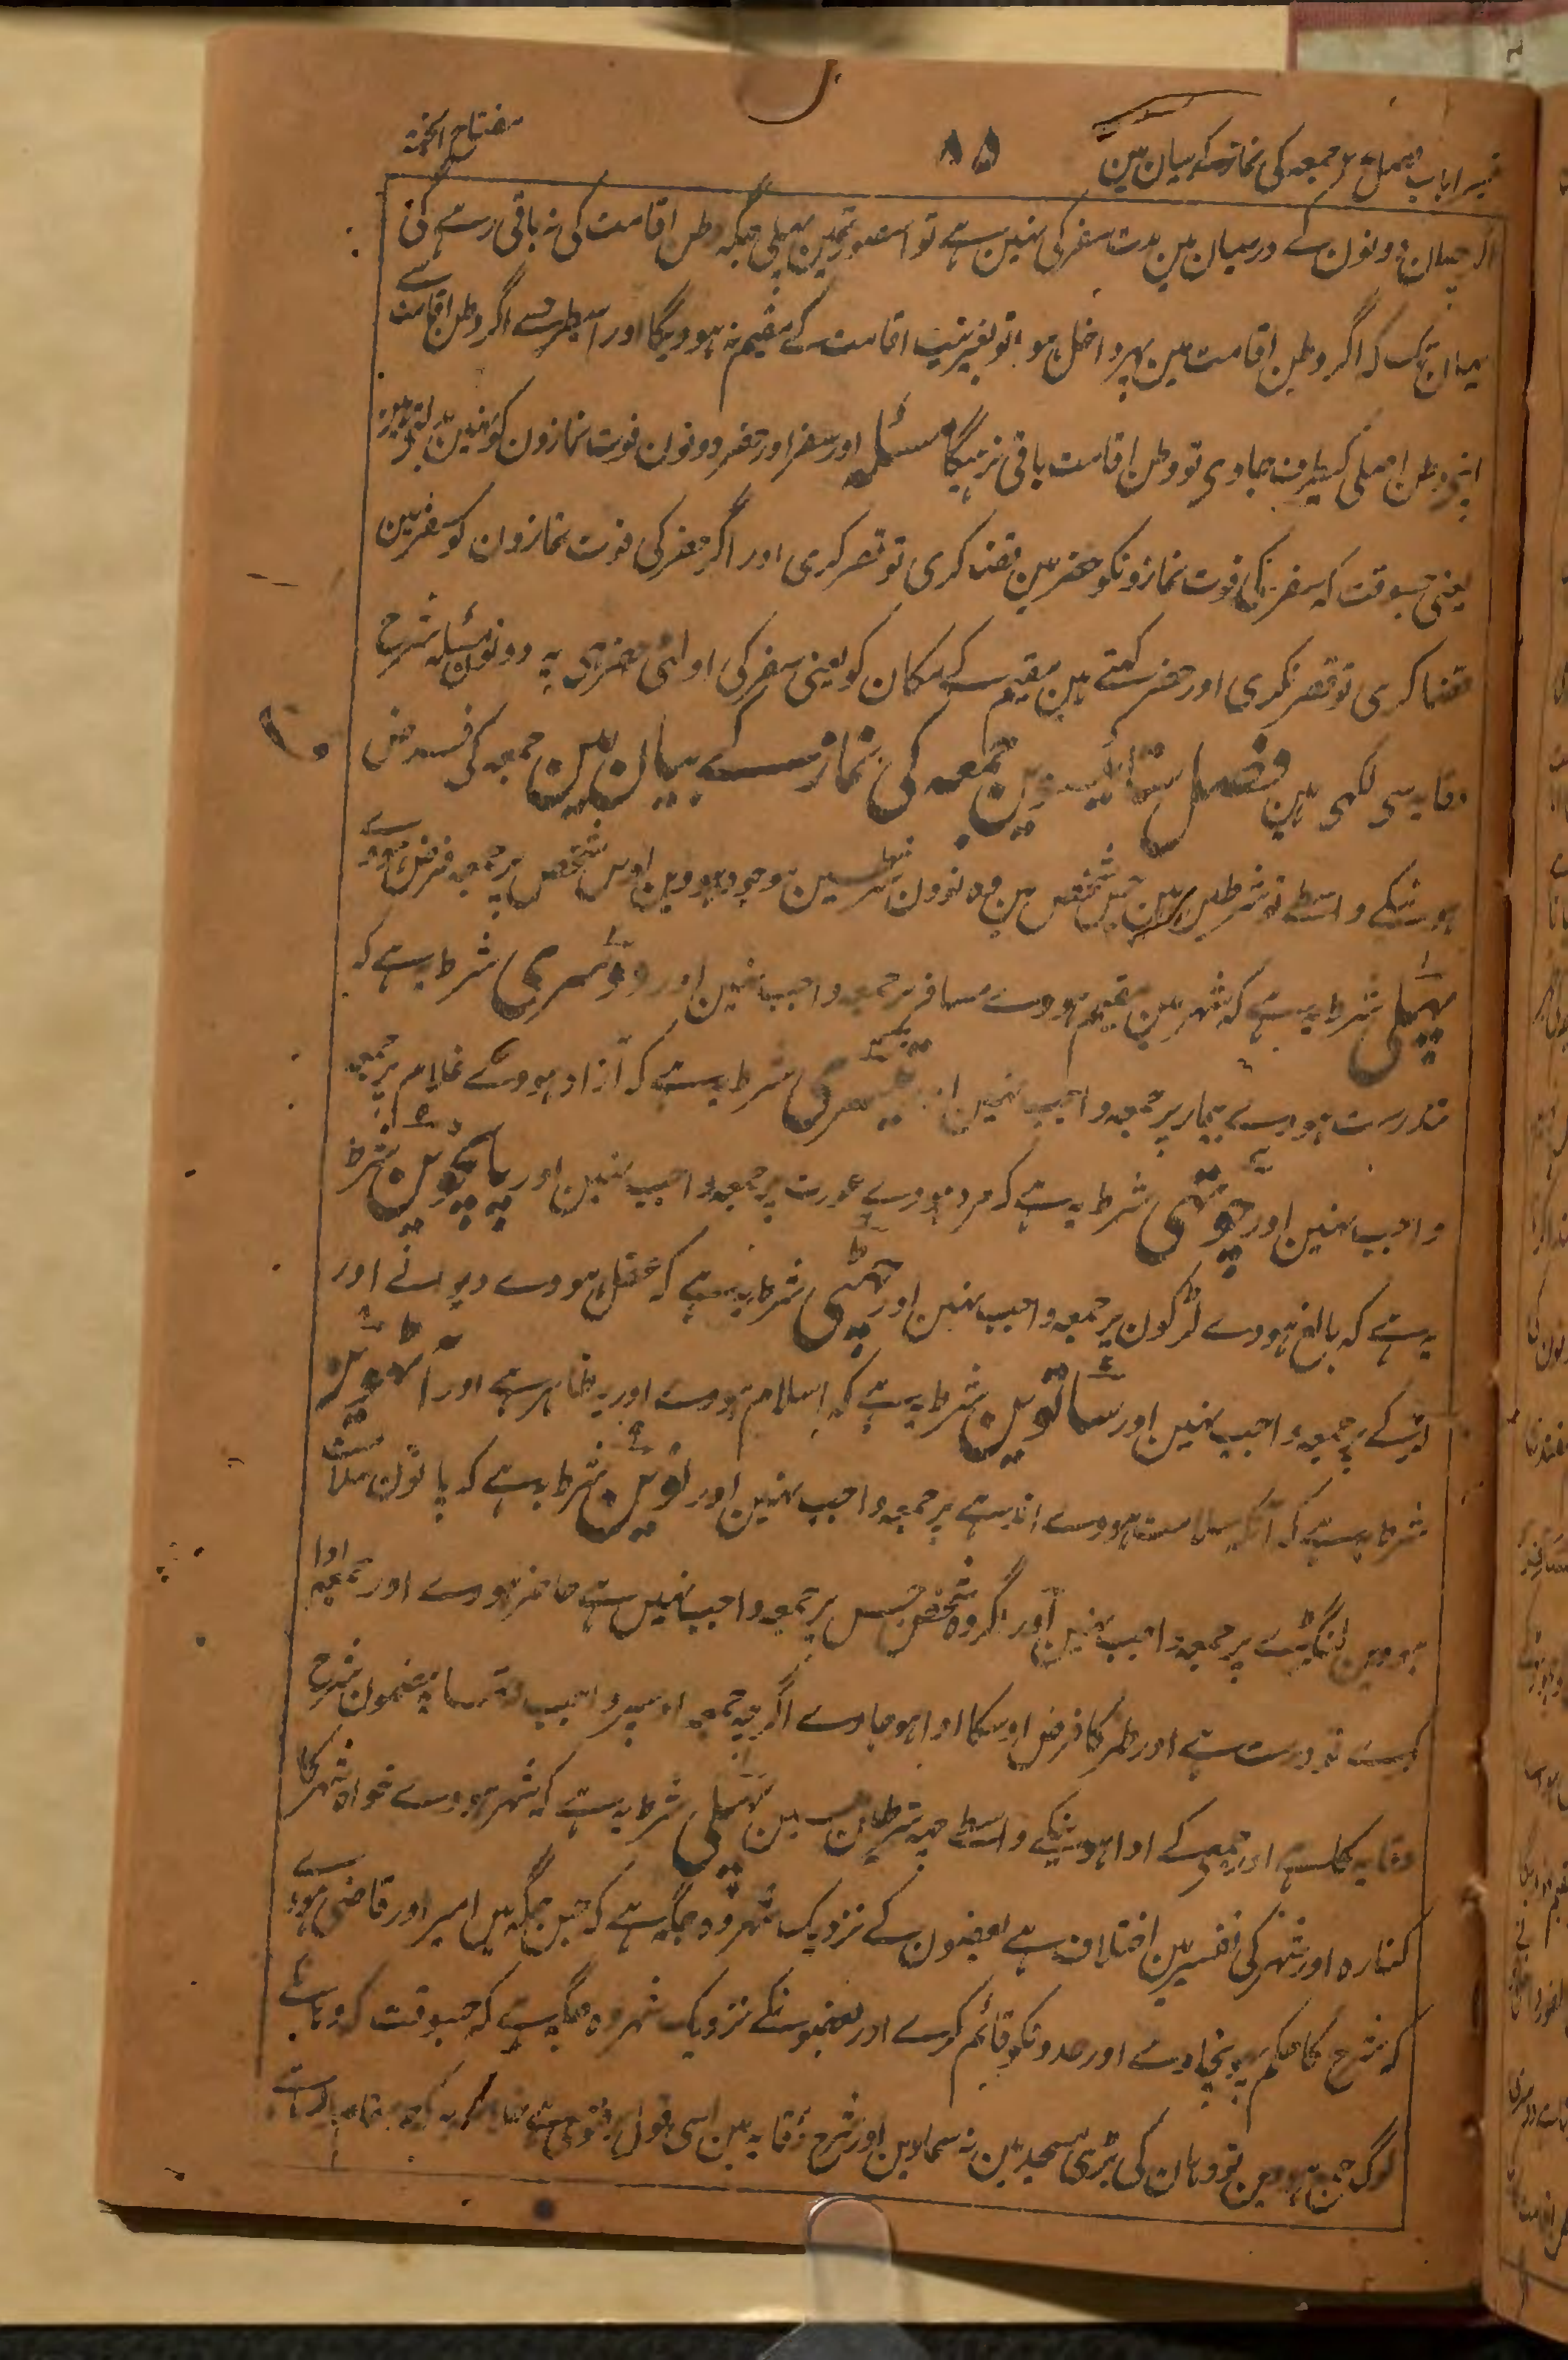 تیسرا باب فصل ۲۷ جمعہ کی نماز کے بیان مین
۸۵
مفتاح الجنۃ
اگرچہ ان دونون کے درمیان مین مدت سفر کی نہین ہے تو اسصورتمین پہلی جگہ وطن اقامت کی نہ باقی رہے گی
یہان تک کہ اگر وطن اقامت مین پہر داخل ہو تو بغیر نیت اقامت کے مقیم نہ ہوویگا اور اسیطرح سے اگر وطن اقامت سے
اپنے وطن اصلی کیطرف جاوی تو وطن اقامت باقی نرہیگا مسئلہ اور سفر اور حضر دونون فوت نمازون کو نہین بدلتے ہین
یعنی جسوقت کہ سفر کی فوت نمازونکو حضر مین قضا کری تو قصر کری اور اگر حضر کی فوت نمازون کو سفر مین
قضا کری تو قصر نکری اور حضر کہتے ہین مقیم کے مکان کو یعنی سفر کی اولٹی حضر ہی یہ دونون مسئلہ شرح
وقایہ سی لکہی ہین فصل ستائیسوین جمعہ کی نماز کے بیان مین جمعہ کی فرض
ہونیکے واسطے نو شرطین ہین جس شخص مین وہ نوون شرطین موجود ہووین اوس شخص پر جمعہ فرض ہووے
پہلی شرط یہ ہے کہ شہر مین مقیم ہووے مسافر پر جمعہ واجب نہین اور دوسری شرط یہ ہے کہ
تندرست ہووے بیمار پر جمعہ واجب نہین اور تیسری شرط یہ ہے کہ آزاد ہووے غلام پر جمعہ
واجب نہین اور چوتھی شرط یہ ہے کہ مرد ہووے عورت پر جمعہ واجب نہین اور پانچوین شرط
یہ ہے کہ بالغ ہووے لڑکون پر جمعہ واجب نہین اور چھٹی شرط یہ ہے کہ عقل ہووے دیوانے اور
لڑکے پر جمعہ واجب نہین اور ساتوین شرط یہ ہے کہ اسلام ہووے اور یہ ظاہر ہے اور آٹھوین
شرط یہ ہے کہ آنکہ سلامت ہووے اندہے پر جمعہ واجب نہین اور نوین شرط یہ ہے کہ پانون سلامت
ہووین لنگڑے پر جمعہ واجب نہین اور اگر وہ شخص جس پر جمعہ واجب نہین ہے حاضر ہووے اور جمعہ ادا
کرے تو درست ہے اور ظہر کا فرض اوسکا ادا ہو جاوے اگرچہ جمعہ اوسپر واجب نتھا یہ مضمون شرح
وقایہ کا ہے اور جمعی کے ادا ہونیکے واسطے چہ شرطین ہین پہلی شرط یہ ہے کہ شہر ہووے خواہ شہر کا
کنارہ اور شہر کی تفسیر مین اختلاف ہے بعضون کے نزدیک شہر وہ جگہ ہے کہ جس جگہ مین امیر اور قاضی ہووے
کہ شرع کا حکم پہونچاوے اور حدونکو قائم کرے اور بعضونکے نزدیک شہر وہ جگہ ہے کہ جسوقت کہ وہانکے
لوگ جمع ہووین تو وہان کی بڑی مسجد مین نہ سماوین اور شرح وقایہ مین اسی قول پر فتوی ہے